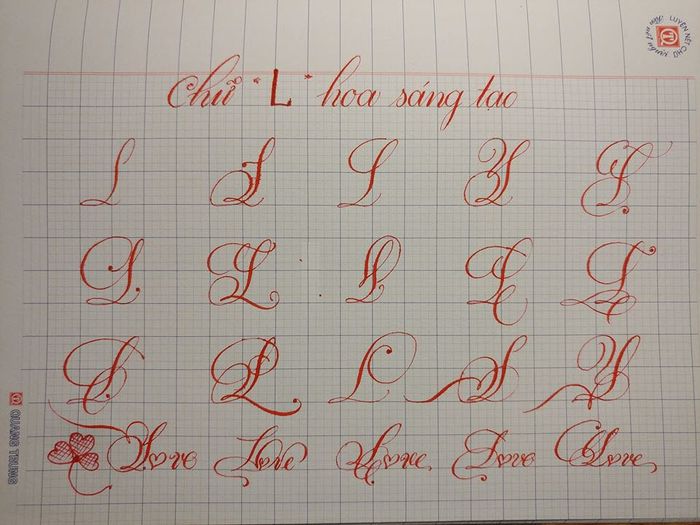 LUYỆN NÉT CHỮ
Chữ "L" hoa sáng tạo
L L L L L
L L L L L
L L L L L
QUANG TRUNG
Love Love Love Love Love